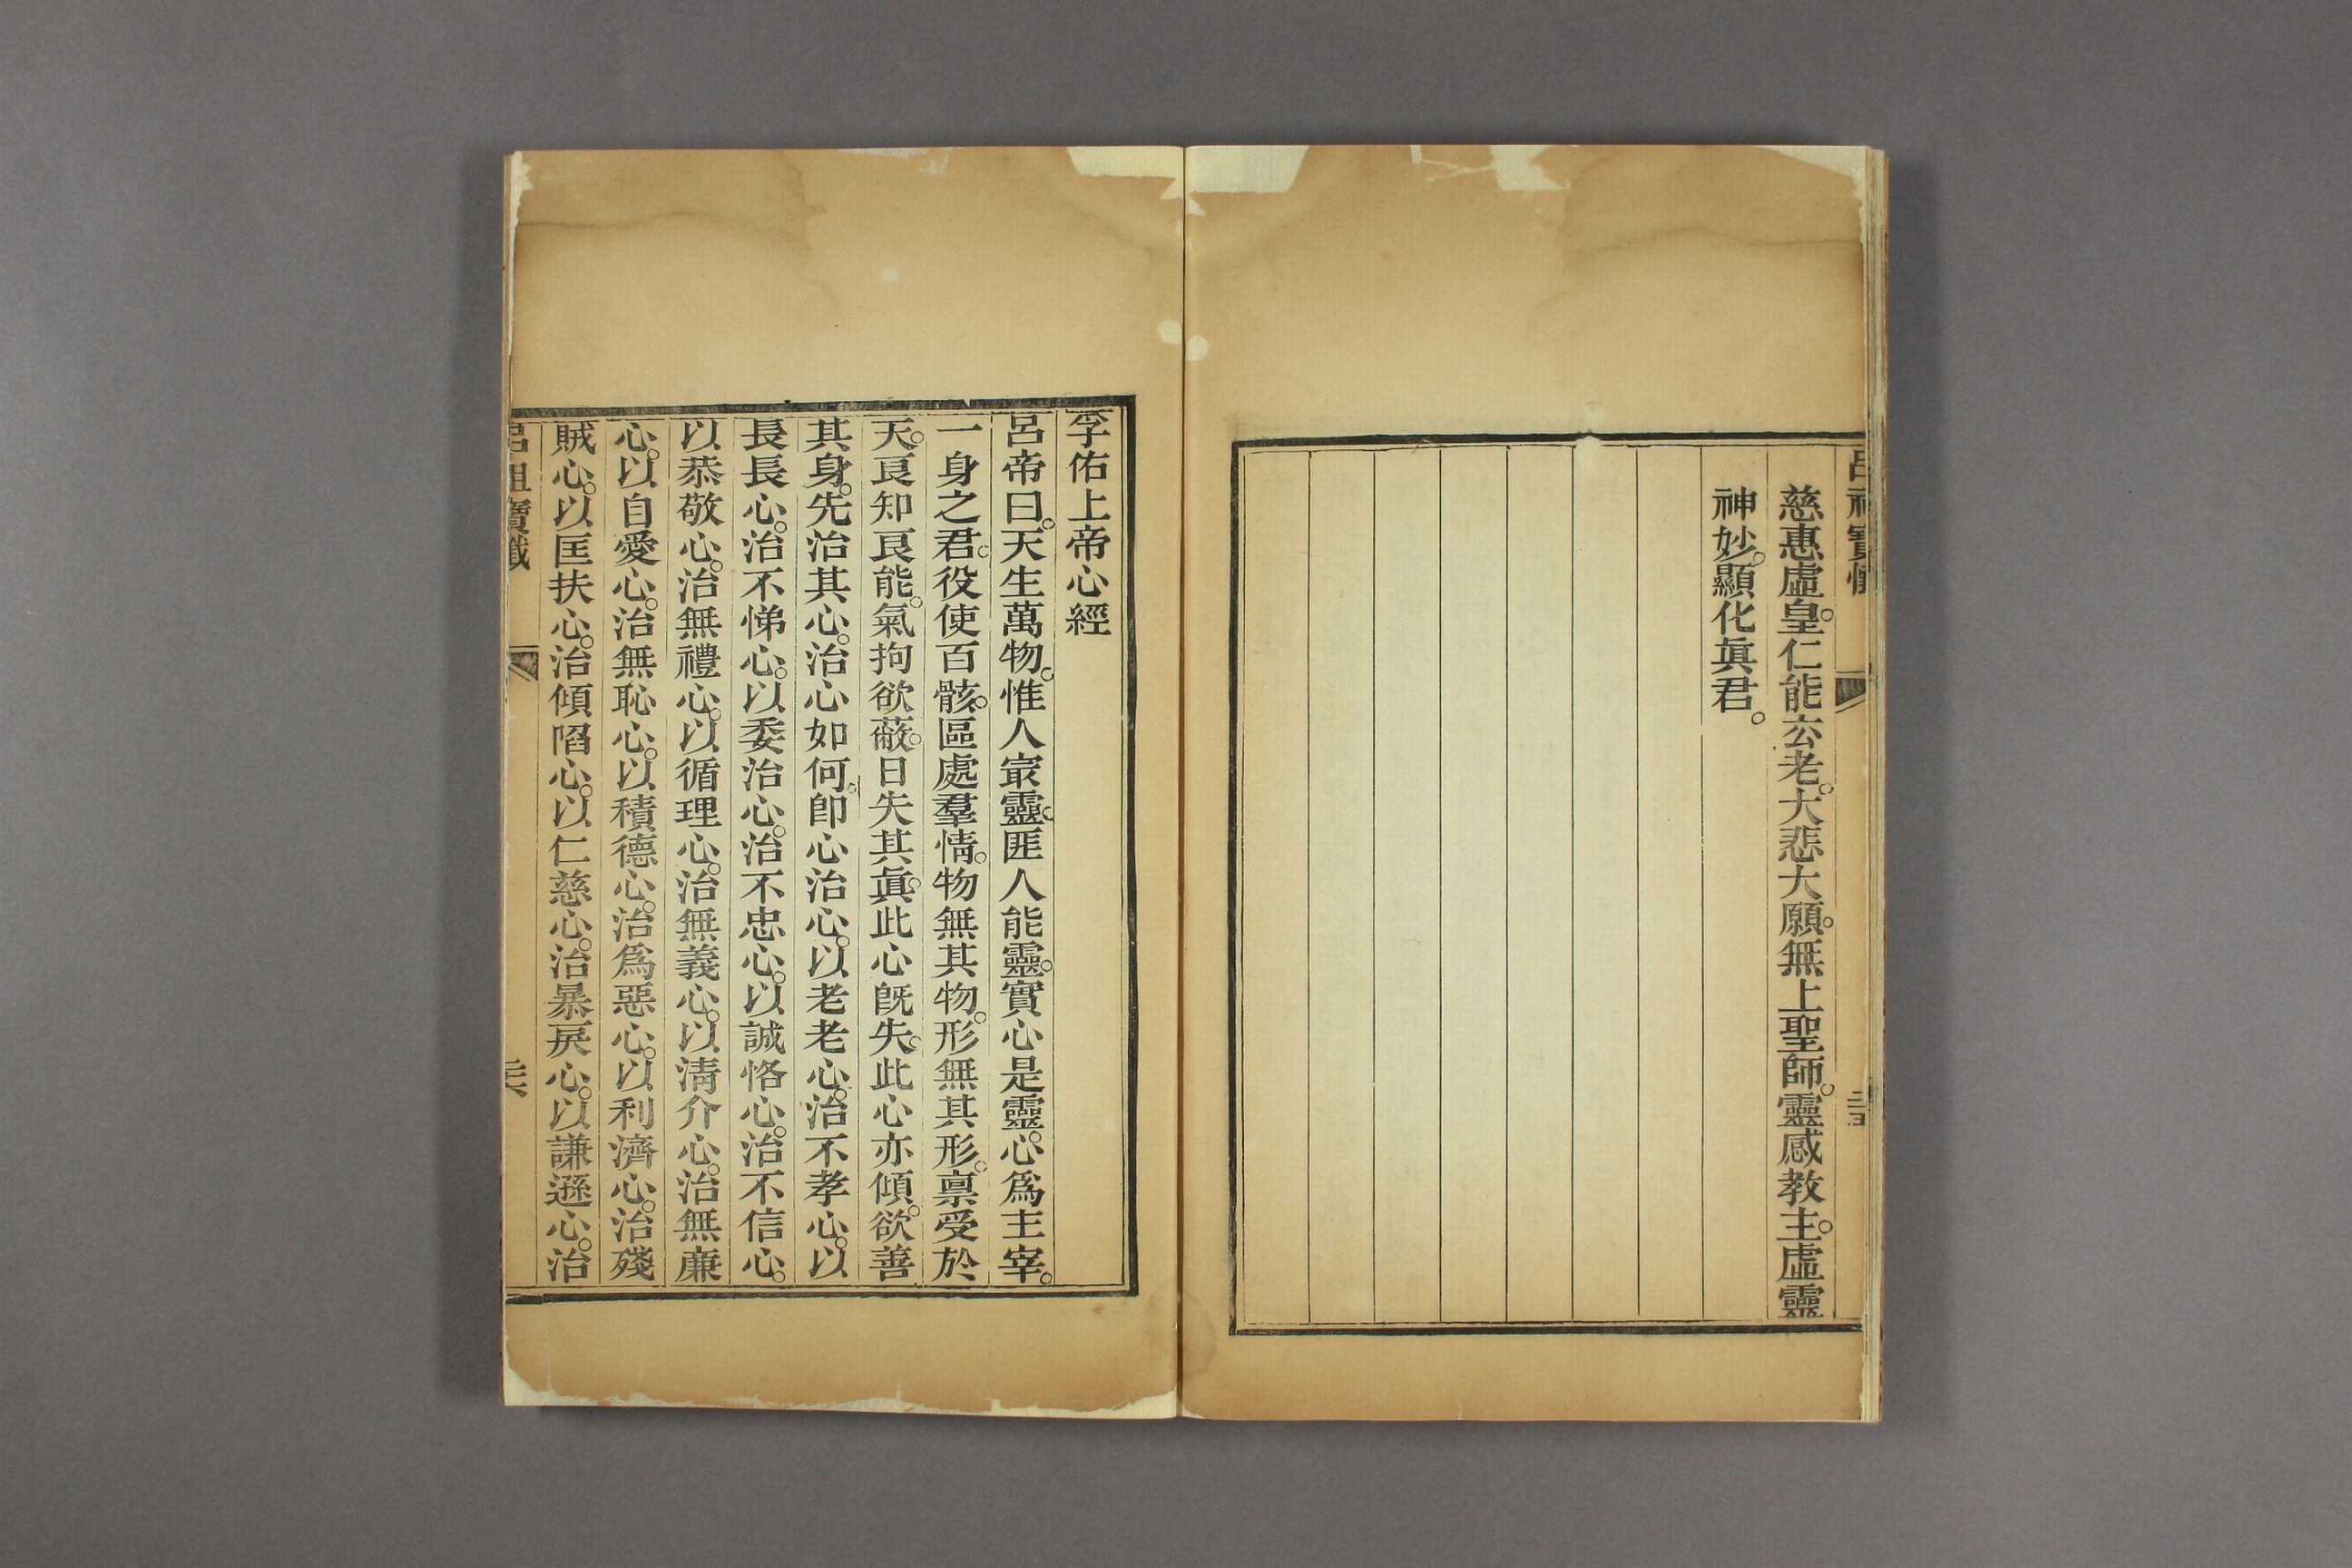 呂祖寶懺
三十五
慈惠虛皇。仁能厺老。大悲大願。無上聖師。靈感教主。虛靈
神妙。顯化眞君。
孚佑上帝心經
呂帝曰。天生萬物。惟人㝡靈。匪人能靈。實心是靈。心爲主宰。
一身之君。役使百骸。區處羣情。物無其物。形無其形。禀受於
天。良知良能。氣拘欲蔽。日失其眞。此心旣失。此心亦傾。欲善
其身。先治其心。治心如何。卽心治心。以老老心。治不孝心。以
長長心。治不悌心。以委治心。治不忠心。以誠恪心。治不信心。
以恭敬心。治無禮心。以循理心。治無義心。以淸介心。治無廉
心。以自愛心。治無恥心。以積德心。治爲惡心。以利濟心。治殘
賊心。以匡扶心。治傾陷心。以仁慈心。治暴戾心。以謙遜心。治
呂祖寶懺
三十六